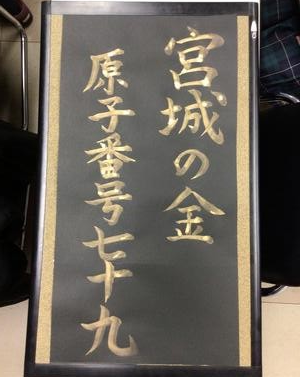 宮城の金
原子番号七十九